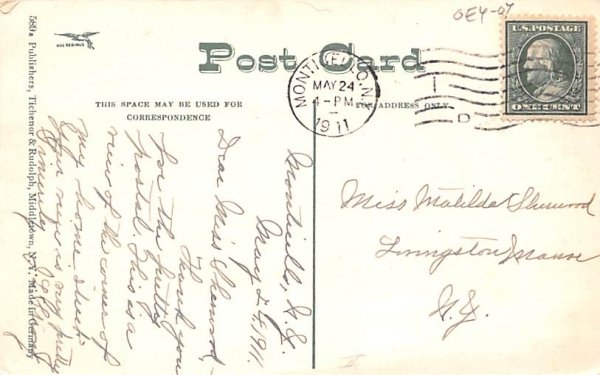 GEY-07
U.S. POSTAGE
ONE CENT
Post Card
MONTICELLO, N.Y.
MAY 24
4-PM
1911
D
THIS SPACE MAY BE USED FOR
CORRESPONDENCE
FOR ADDRESS ONLY
Monticello, N.Y.
May 24, 1911.
Dear Miss Sherwood,-
Thank you
for the pretty
postal. This is a
view of the corner of
my home street.
Your
is very pretty
Sincerely
Miss Matilda Sherwood
Livingston Manor
N.Y.
Publishers, Tichenor & Rudolph, Middletown, N.Y. Made in Germany